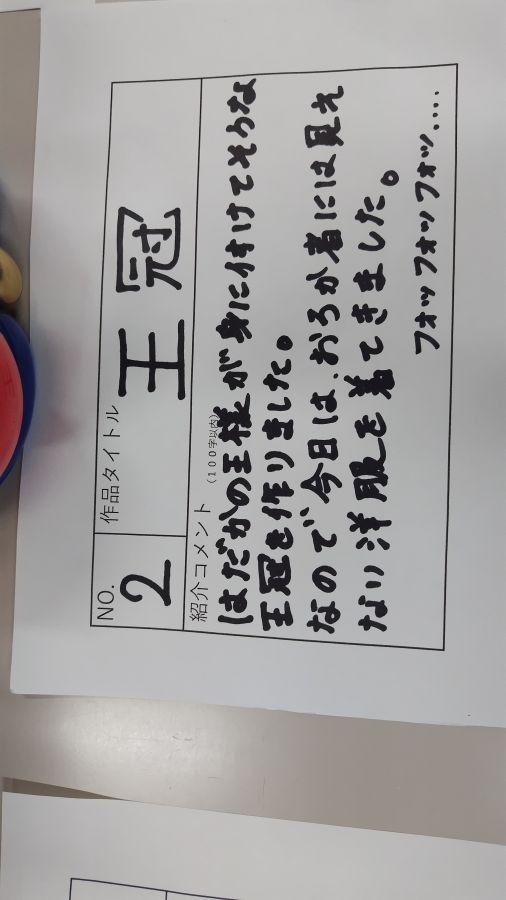 NO.
2
作品タイトル
王冠
紹介コメント (100字以内)
はだかの王様が身に付けてそうな
王冠を作りました。
なので今日は、おろか着には見え
ない洋服を着てきました。
フォッフォッフォッ....